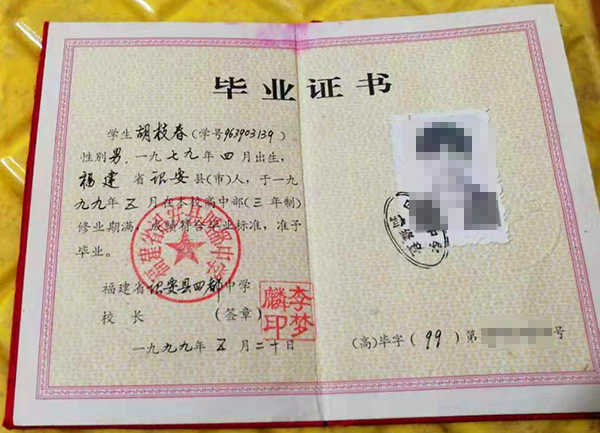 毕业证书
学生胡枝春(学号963903139)、
性别男,一九七九年四月出生,
福建省诏安县(市)人,于一九
九九年五月在本校高中部(三年制)
修业期满,成绩符合毕业标准,准予
毕业。
福建省诏安县四都中学
校长 (签章)
李梦麟印
一九九九年五月二十日
福建省诏安县四都中学
(高)毕字(99)第 号